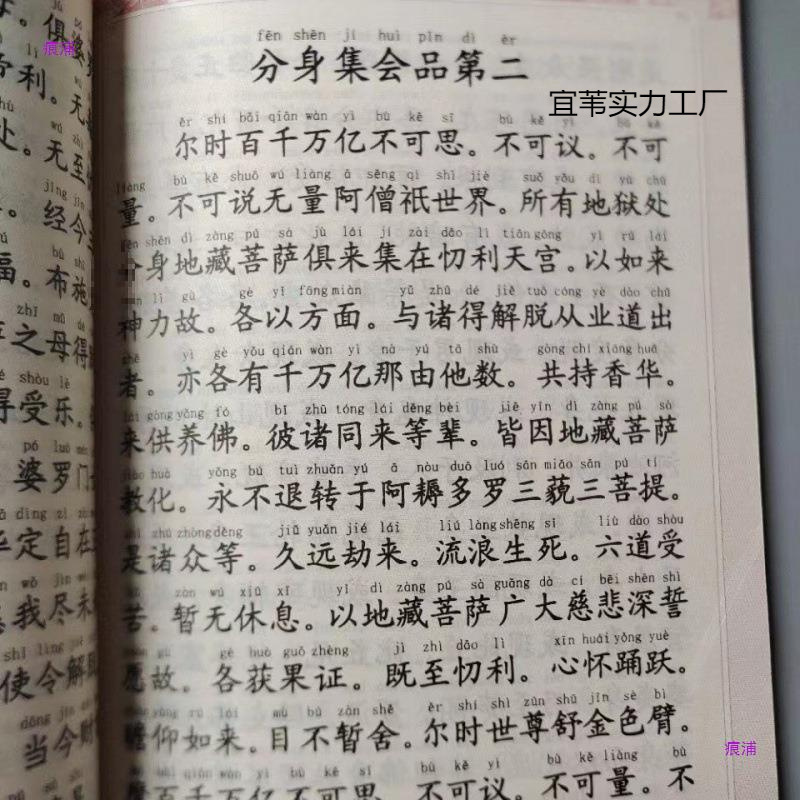 fēn shēn jí huì pǐn dì èr
分身集会品第二
宜苇实力工厂
痕浦
ěr shí bǎi qiān wàn yì bù kě sī bù kě
尔时百千万亿不可思。不可议。不可
liàng bù kě shuō wú liàng ā sēng qí shì jiè suǒ yǒu dì yù chù
量。不可说无量阿僧祇世界。所有地狱处
fēn shēn dì zàng pú sà jù lái jí zài dāo lì tiān gōng yǐ rú lái
分身地藏菩萨俱来集在忉利天宫。以如来
lì gù gè yǐ fāng miàn yǔ zhū dé jiě tuō cóng yè dào chū
神力故。各以方面。与诸得解脱从业道出
zhě yì gè yǒu qiān wàn yì nà yóu tā shù gòng chí xiāng huā
者。亦各有千万亿那由他数。共持香华。
lái gòng yǎng fó bǐ zhū tóng lái děng bèi jiē yīn dì zàng pú sà
来供养佛。彼诸同来等辈。皆因地藏菩萨
jiào huà yǒng bù tuì zhuǎn yú ā nòu duō luó sān miǎo sān pú tí
教化。永不退转于阿耨多罗三藐三菩提。
shì zhū zhòng děng jiǔ yuǎn jié lái liú làng shēng sǐ liù dào shòu
是诸众等。久远劫来。流浪生死。六道受
kǔ zàn wú xiū xī yǐ dì zàng pú sà guǎng dà cí bēi shēn shì
苦。暂无休息。以地藏菩萨广大慈悲深誓
gù gè huò guǒ zhèng jì zhì dāo lì xīn huái yǒng yuè
愿故。各获果证。既至忉利。心怀踊跃。
yǎng rú lái mù bù zàn shě ěr shí shì zūn shū jīn sè bì
瞻仰如来。目不暂舍。尔时世尊舒金色臂。
bǎi qiān wàn yì bù kě sī bù kě yì bù kě liàng bù
摩百千万亿不可思。不可议。不可量。不
痕浦
利。无
处。无至
经今
福。布施
之母得
得受乐。
婆罗门
定自在
我尽未
使令解
当今财